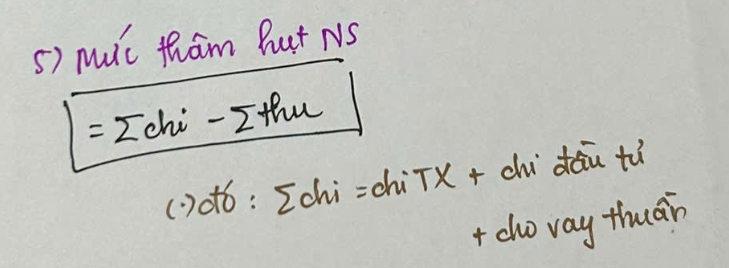 5) Mức thâm hụt NS
= Σchi - Σthu
(·) đó : Σchi = chi TX + chi đầu tư
+ cho vay thuần